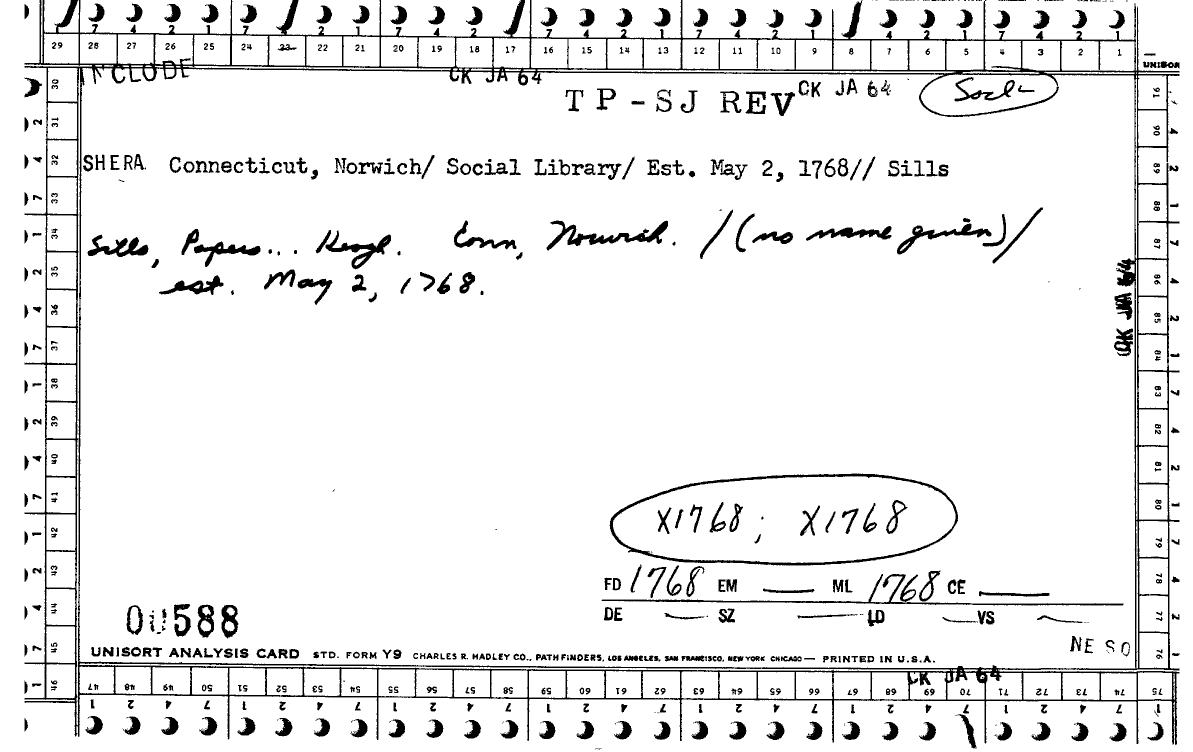 7 4 2 1 7 4 2 1 7 4 2 1 7 4 2 1 7 4 2 1
29 28 27 26 25 24 23 22 21 20 19 18 17 16 15 14 13 12 11 10 9 8 7 6 5 4 3 2 1
UNISOR
INCLUDE CK JA 64 CK JA 64
TP-SJ REV
SHERA Connecticut, Norwich/ Social Library/ Est. May 2, 1768// Sills
Sills, Papers... Keogh. Conn, Norwich. / (no name given)/
est. May 2, 1768.
CK JAN 64
X1768; X1768
FD 1768 EM — ML 1768 CE —
DE — SZ — LD — VS —
00588
NE SO
UNISORT ANALYSIS CARD STD. FORM Y9 CHARLES R. HADLEY CO., PATHFINDERS, LOS ANGELES, SAN FRANCISCO, NEW YORK CHICAGO — PRINTED IN U.S.A.
CK JA 64
30 31 32 33 34 35 36 37 38 39 40 41 42 43 44 45 46
91 90 89 88 87 86 85 84 83 82 81 80 79 78 77 76
47 48 49 50 51 52 53 54 55 56 57 58 59 60 61 62 63 64 65 66 67 68 69 70 71 72 73 74 75